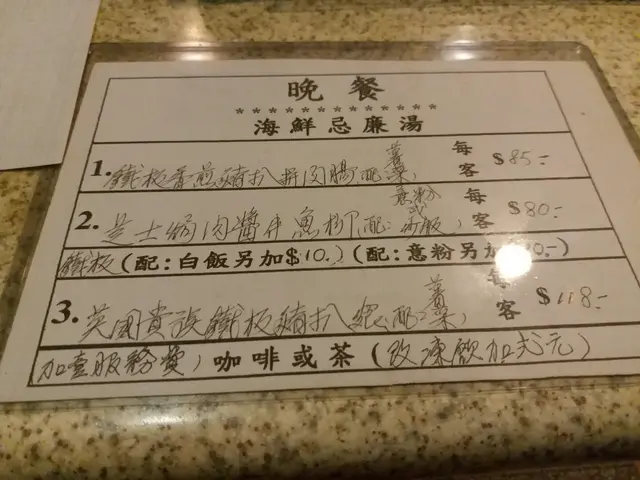 晚餐
*************
海鮮忌廉湯
1. 鐵板香煎豬扒拼肉腸配薯菜 每客 $85.-
2. 芝士焗肉醬牛魚柳配意粉或御飯 每客 $80.-
鐵板 (配:白飯另加$10.) (配:意粉另加 0.-)
3. 英國貴族鐵板豬扒 配薯菜 每客 $118.-
加壹服務費, 咖啡或茶 (改凍飲加弍元)